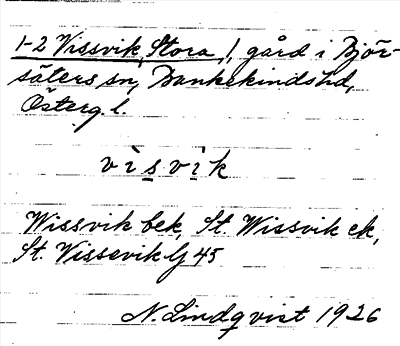 1-2 Vissvik, Stora, 1, gård i Björ-
säters sn, Bankekinds hd,
Österg. l.
v i s v i k
Wissvik bek, St. Wissvik ek,
St. Vissevik G 45
N. Lindqvist 1926